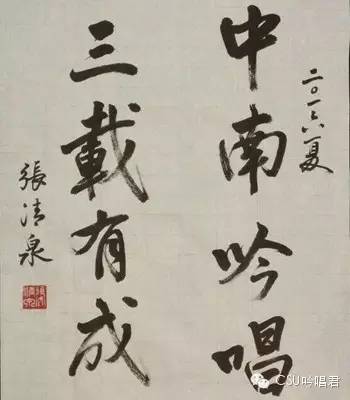 二〇一六夏
中南吟唱
三載有成
張清泉
CSU吟唱君